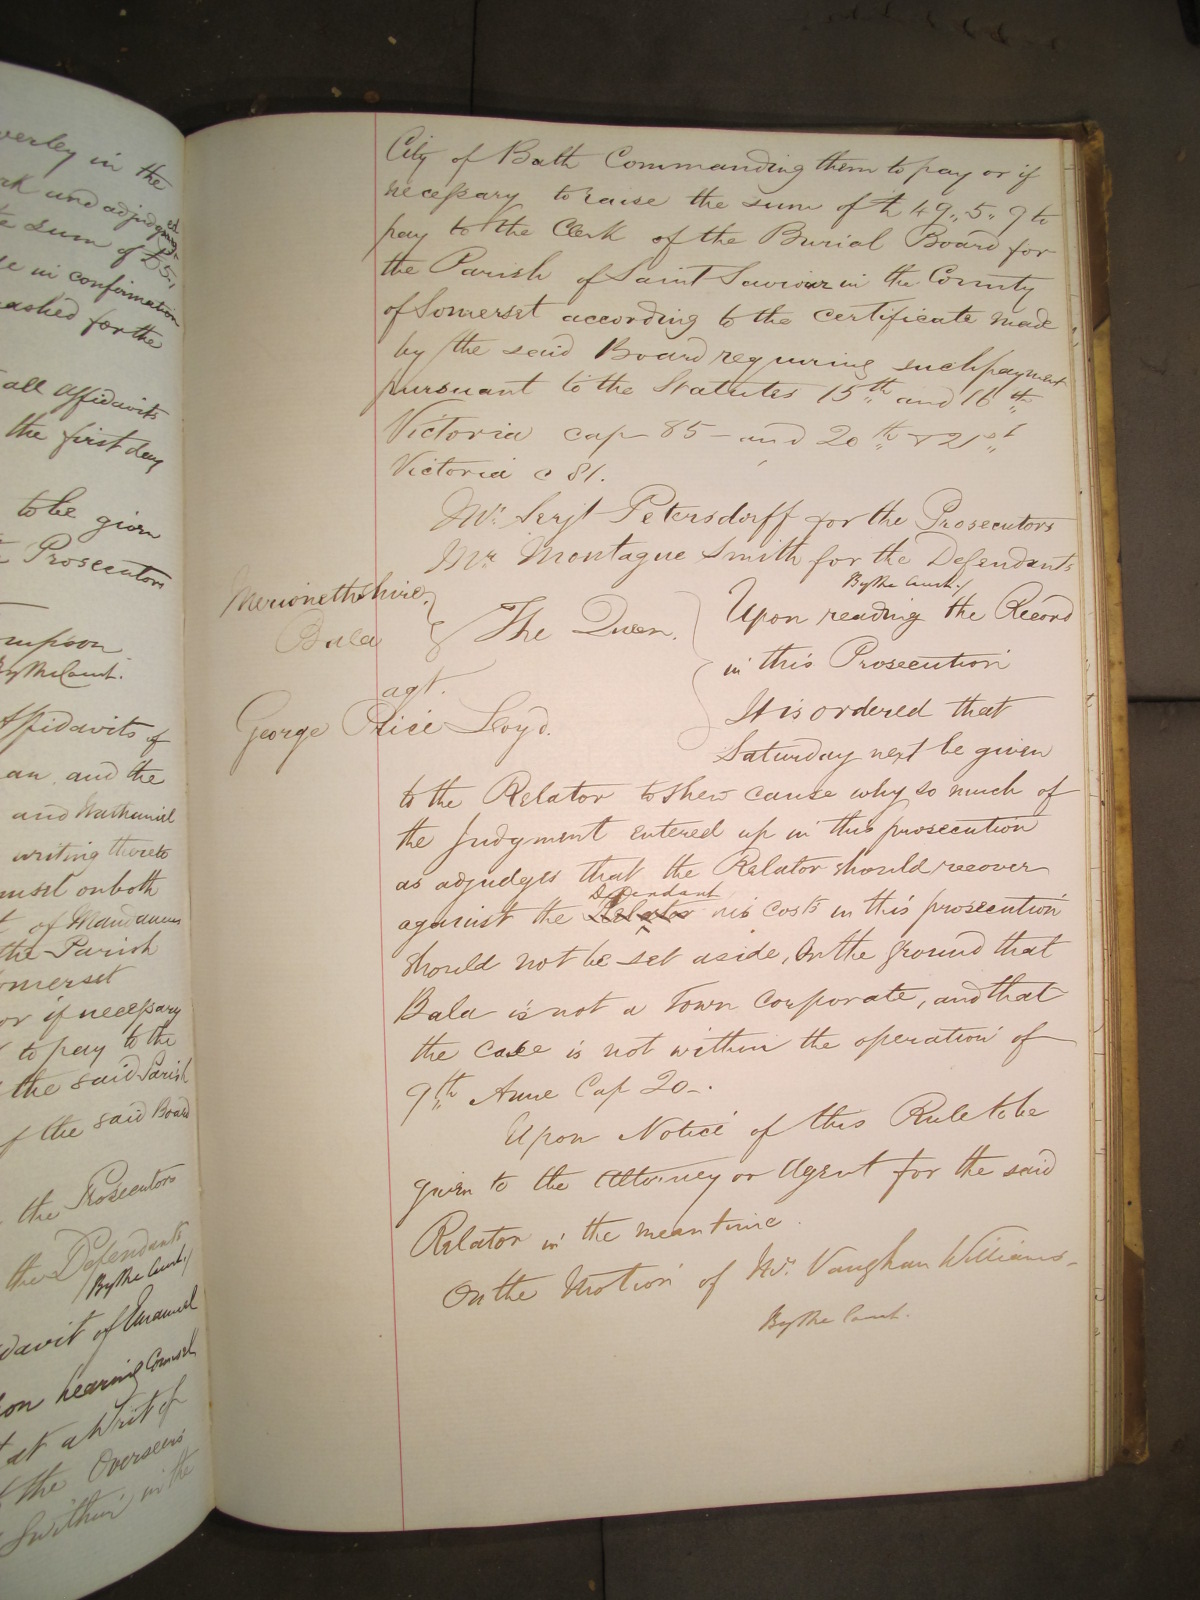 verley in the
rk and adjudged
e sum of £5,
de in confirmation
ashed for the
all affidavits
the first day
to be given
Prosecutors
mpson
By the Court.
Affidavits of
an and the
and Nathaniel
writing thereto
unsel on both
t of Mandamus
the Parish
omerset
or if necessary
to pay to the
the said Parish
f the said Board
the Prosecutors
the Defendants
By the Court
davit of Emanuel
on hearing Counsel
at a Writ of
the Overseers
Swithin in the
City of Bath Commanding them to pay or if
necessary to raise the sum of £49,,5,,9 to
pay to the Clerk of the Burial Board for
the Parish of Saint Saviour in the County
of Somerset according to the certificate made
by the said Board requiring such payment
pursuant to the Statutes 15th and 16th
Victoria cap 85 – and 20th & 21st
Victoria c 81.
Mr. Serjt Petersdorff for the Prosecutors
Mr. Montague Smith for the Defendants
By the Court.
Merionethshire
Bala
The Queen.
agt.
George Price Lloyd.
Upon reading the Record
in this Prosecution
It is ordered that
Saturday next be given
to the Relator to shew cause why so much of
the Judgment entered up in this prosecution
as adjudges that the Relator should recover
Defendant
against the Relator his costs in this prosecution
should not be set aside, On the ground that
Bala is not a Town Corporate, and that
the case is not within the operation of
9th Anne Cap 20 –.
Upon Notice of this Rule to be
given to the Attorney or Agent for the said
Relator in the mean time.
On the Motion of Mr. Vaughan Williams –
By the Court.